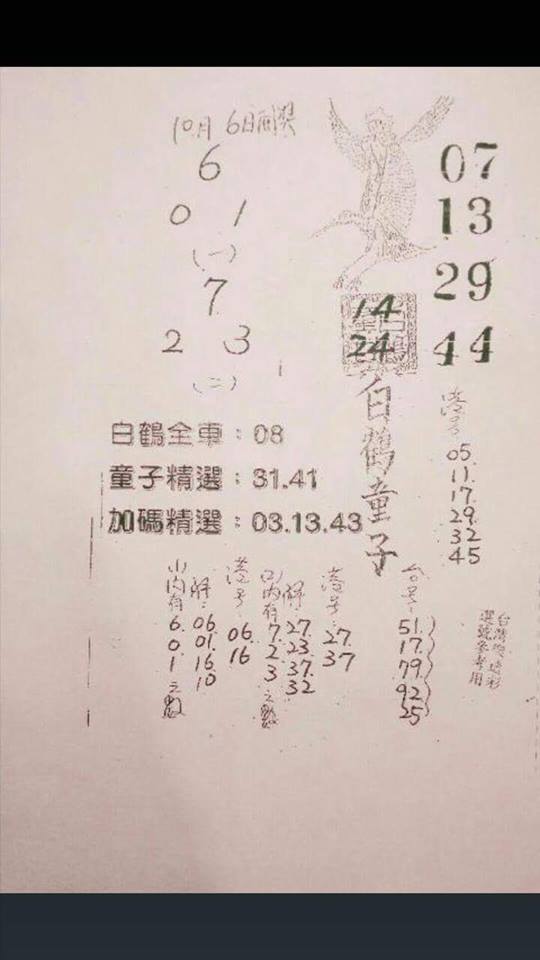 10月 6日開獎
6
0 1
(一)
7
2 3
(二)
07
13
29
44
14
24
白鶴童子
白鶴全車：08
童子精選：31.41
加碼精選：03.13.43
港号
05.
11.
17.
29.
32
45
(一)内有
6.
0.
1
之數
解：
06
01.
16
10
港号
06.
16
(二)内有
7.
2.
3
之數
解：
27.
23.
37.
32
港号：
27.
37
台号：
51.
17.
79.
92.
25
選號參考用